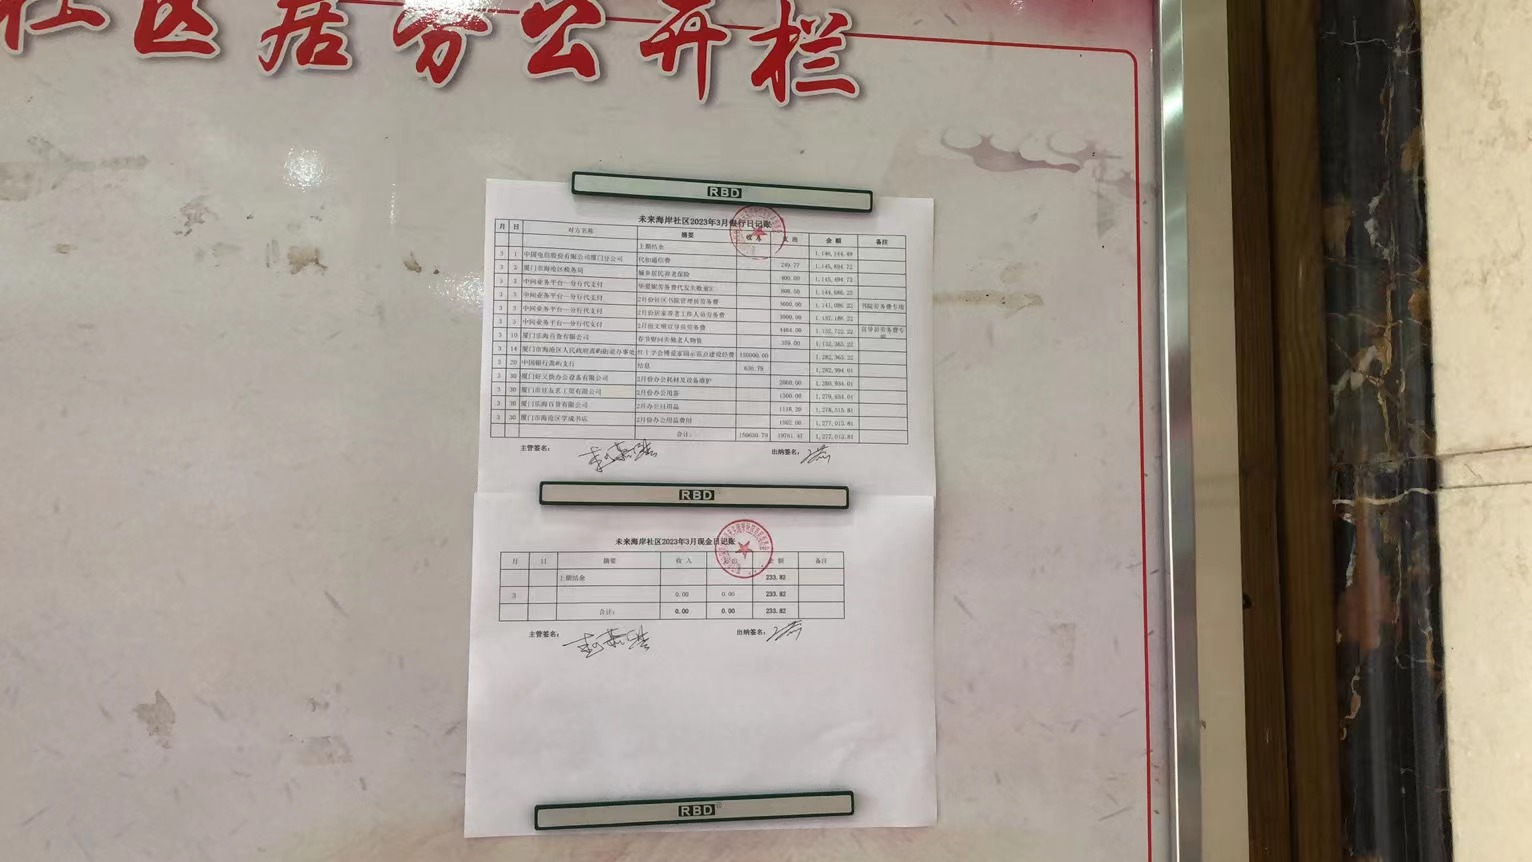 社区居务公开栏
RBD
未来海岸社区2023年3月银行日记账
月 日 对方名称 摘要 收入 支出 余额 备注
上期结余 1,146,144.49
3 1 中国电信股份有限公司厦门分公司 代扣通信费 249.77 1,145,894.72
3 2 厦门市海沧区税务局 城乡居民养老保险 400.00 1,145,494.72
3 中间业务平台—分行代支付 808.50 1,144,686.22
3 中间业务平台—分行代支付 2月份社区书院管理员劳务费 3600.00 1,141,086.22 书院劳务费专项
3 中间业务平台—分行代支付 2月份居家养老工作人员劳务费 3900.00 1,137,186.22
3 中间业务平台—分行代支付 2月份文明宣导员劳务费 4464.00 1,132,722.22 宣导员劳务费专项
3 10 厦门乐海百货有限公司 春节慰问失独老人物资 359.00 1,132,363.22
3 14 厦门市海沧区人民政府嵩屿街道办事处 红十字会博爱家园示范点建设经费 150000.00 1,282,363.22
3 20 中国银行嵩屿支行 结息 630.79 1,282,994.01
3 30 厦门好又快办公设备有限公司 2月份办公耗材及设备维护 2060.00 1,280,934.01
3 30 2月份办公用茶 1300.00 1,279,634.01
3 30 厦门乐海百货有限公司 2月办公日用品 1118.20 1,278,515.81
3 30 厦门市海沧区学成书店 2月份办公用品费用 1502.00 1,277,013.81
合计： 150630.79 19761.47 1,277,013.81
主管签名： 出纳签名：
RBD
未来海岸社区2023年3月现金日记账
月 日 摘要 收入 支出 余额 备注
上期结余 233.82
3 0.00 0.00 233.82
合计： 0.00 0.00 233.82
主管签名： 出纳签名：
RBD